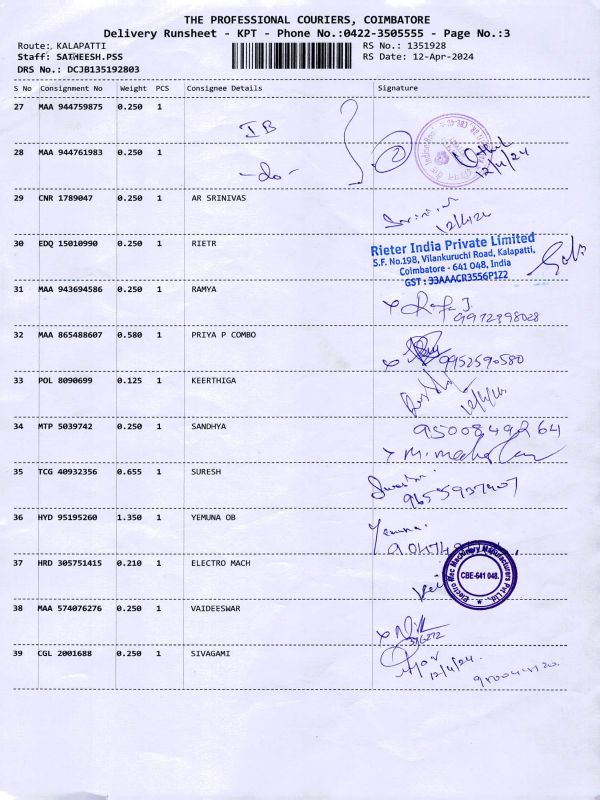 THE PROFESSIONAL COURIERS, COIMBATORE
Delivery Runsheet - KPT - Phone No.:0422-3505555 - Page No.:3
Route: KALAPATTI
Staff: SATHEESH.PSS
DRS No.: DCJB135192803
RS No.: 1351928
RS Date: 12-Apr-2024
S No Consignment No Weight PCS Consignee Details Signature
27 MAA 944759875 0.250 1 IB
28 MAA 944761983 0.250 1 -do- 12/4/24
29 CNR 1789047 0.250 1 AR SRINIVAS
30 EDQ 15010990 0.250 1 RIETR
Rieter India Private Limited
S.F. No.198, Vilankuruchi Road, Kalapatti,
Coimbatore - 641 048, India
GST : 33AAACR3556P1Z2
31 MAA 943694586 0.250 1 RAMYA
32 MAA 865488607 0.580 1 PRIYA P COMBO
9952590580
33 POL 8090699 0.125 1 KEERTHIGA
34 MTP 5039742 0.250 1 SANDHYA
9500849264
35 TCG 40932356 0.655 1 SURESH
9655937407
36 HYD 95195260 1.350 1 YEMUNA OB
Yemuna.
37 HRD 305751415 0.210 1 ELECTRO MACH
Electro Mac Machinery Manufacturers Pvt Ltd.
CBE-641 048.
38 MAA 574076276 0.250 1 VAIDEESWAR
39 CGL 2001688 0.250 1 SIVAGAMI
12/4/24